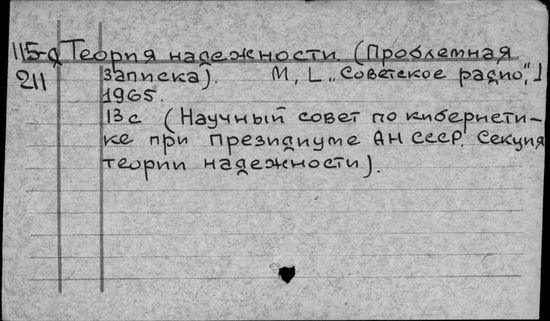 115-д Теория надежности. (Проблемная
211 записка). М, [„Советское радио",]
1965.
13с (Научный совет по кибернети-
ке при Президиуме АН СССР. Секция
теории надежности).